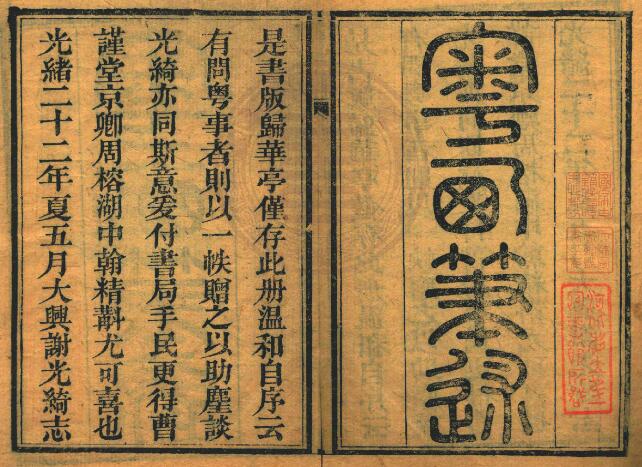 粤囱筆述
是書版歸華亭僅存此册溫和自序云
有問粤事者則以一帙贈之以助麈談
光綺亦同斯意爰付書局手民更得曹
謹堂京卿周榕湖中翰精斠尤可喜也
光緒二十二年夏五月大興謝光綺志